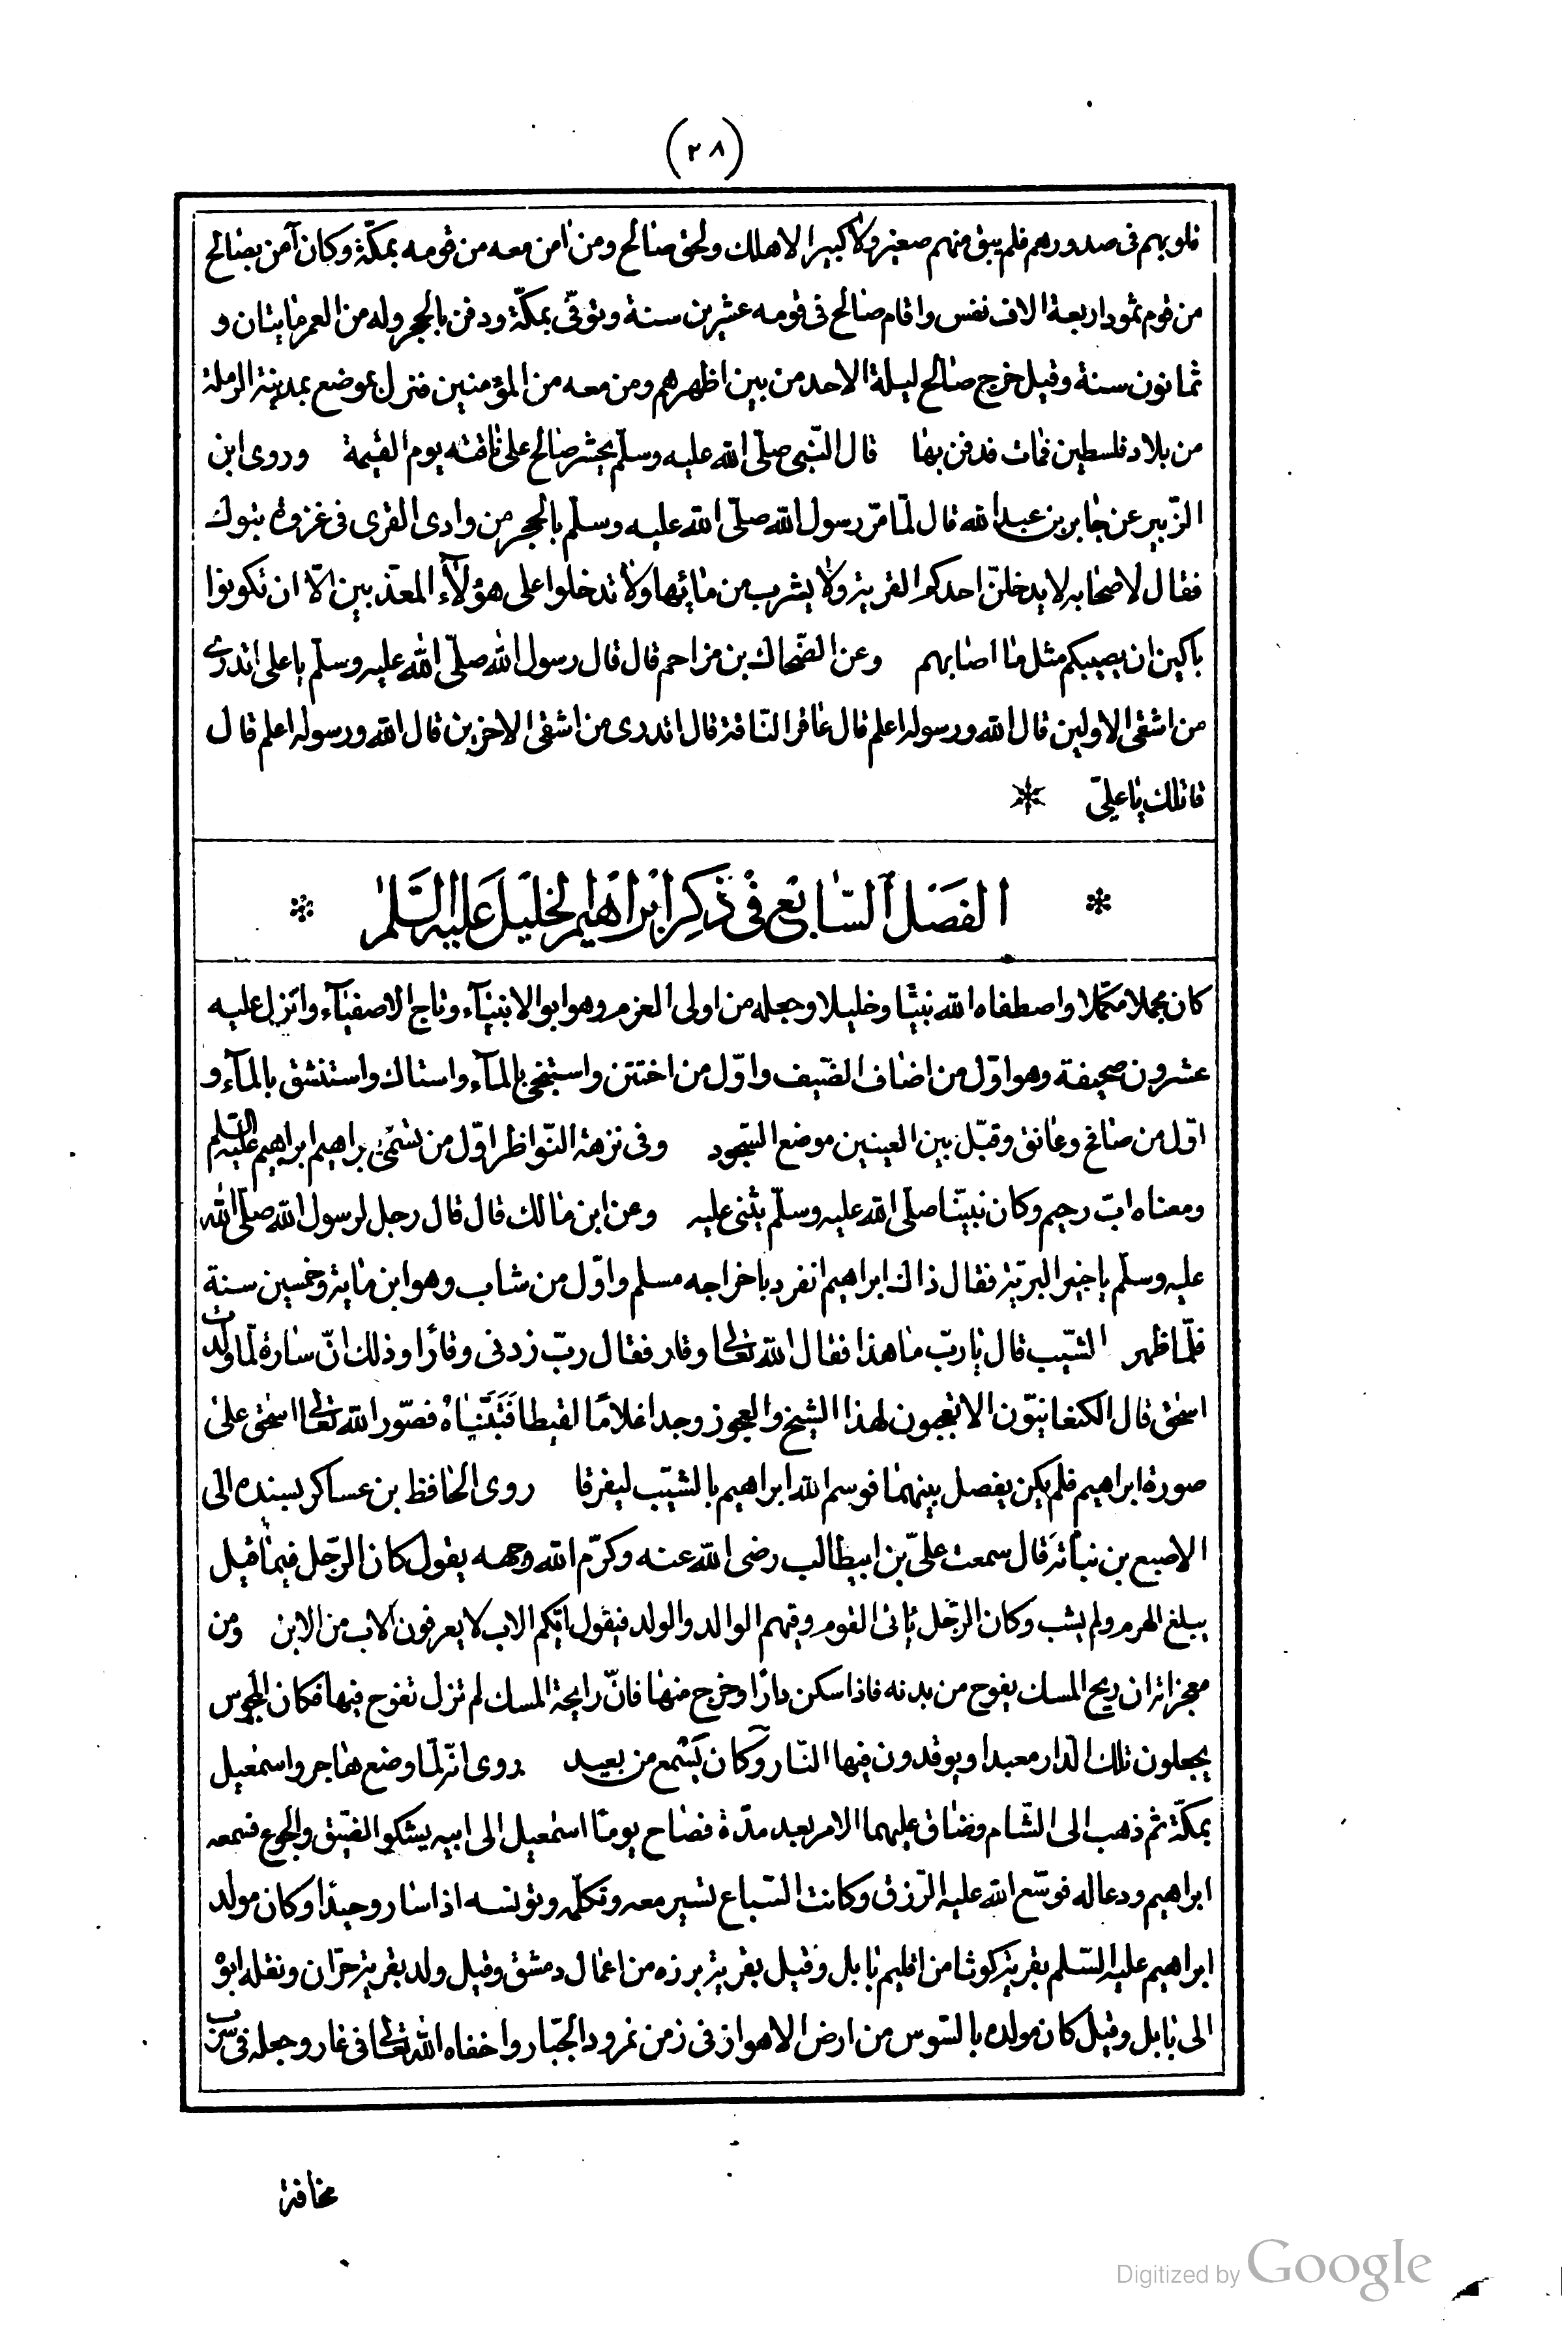 (٢٨)
قلوبهم فى صدورهم فلم يبق منهم صغير ولا كبير الا هلك ولحق صالح ومن امن معه من قومه بمكّة وكان آمن بصالح
من قوم ثمود اربعة الاف نفس واقام صالح فى قومه عشرين سنة وتوفّى بمكّة ودفن بالحجر وله من العمر مايتان و
ثمانون سنة وقيل خرج صالح ليلة الاحد من بين اظهرهم ومن معه من المؤمنين فنزل بموضع بمدينة الرملة
من بلاد فلسطين فمات فدفن بها قال النّبى صلّى الله عليه وسلّم يحشر صالح على ناقته يوم القيمة وروى ابن
الزّبير عن جابر بن عبد الله قال لمّا مرّ رسول الله صلّى الله عليه وسلّم بالحجر من وادى القرى فى غزوة تبوك
فقال لاصحابه لا يدخلنّ احدكم القرية ولا يشرب من مائها ولا تدخلوا على هؤلآء المعذّبين الّا ان تكونوا
باكين ان يصيبكم مثل ما اصابهم وعن الضّحاك بن مزاحم قال قال رسول الله صلّى الله عليه وسلّم يا على اتدرى
من اشقى الاولين قال الله ورسوله اعلم قال عاقر النّاقة قال اتدرى من اشقى الاخرين قال الله ورسوله اعلم قال
قاتلك يا علىّ *
* الفصل السّابع فى ذكر ابراهيم الخليل عليه السّلم *
كان مجملا مكمّلا واصطفاه الله نبيًّا وخليلا وجعله من اولى العزم وهو ابو الانبيآء وتاج الاصفيآء وانزل عليه
عشرون صحيفة وهو اوّل من اضاف الضّيف واوّل من اختتن واستنجى بالمآء واستاك واستنشق بالمآء و
اوّل من صافح وعانق وقبّل بين العينين موضع السّجود وفى نزهة النّواظر اوّل من تسمّى ابراهيم ابراهيم عليه السّلم
ومعناه اب رحيم وكان نبيّنا صلّى الله عليه وسلّم يثنى عليه وعن ابن مالك قال قال رجل لرسول الله صلّى الله
عليه وسلّم يا خير البريّة فقال ذاك ابراهيم انفرد باخراجه مسلم واوّل من شاب وهو ابن ماية وخمسين سنة
فلمّا ظهر الشّيب قال يا ربّ ما هذا فقال الله تعالى وقار فقال ربّ زدنى وقارًا وذلك انّ سارة لمّا ولدت
اسحٰق قال الكنعانيّون الا تعجبون لهذا الشيخ والعجوز وجدا غلامًا لقيطا فتبنّياه فصّور الله تعالى اسحٰق على
صورة ابراهيم فلم يكن يفصل بينهما فوسم الله ابراهيم بالشيّب ليفرقا روى الحافظ بن عساكر بسنده الى
الاصبع بن نباتة قال سمعت علىّ بن ابيطالب رضى الله عنه وكرّم الله وجهه يقول كان الرّجل فيما قيل
يبلغ الهرم ولم يشب وكان الرّجل ياتى القوم وفيهم الوالد والولد فيقول ايّكم الاب لا يعرفون الاب من الابن ومن
معجزاته ان ريح المسك يفوح من بدنه فاذا سكن دارًا وخرج منها فانّ رايحة المسك لم تزل تفوح فيها فكان المجوس
يجعلون تلك الدّار معبدا ويوقدون فيها النّار وكان يسمع من بعيد روى انّه لمّا وضع هاجر واسمعيل
بمكّة ثم ذهب الى الشّام وضاق عليهما الامر بعد مدّة فصاح يومًا اسمعيل الى ابيه يشكو الضّيق والجوع فسمعه
ابراهيم ودعا له فوسّع الله عليه الرّزق وكانت السّباع تسير معه وتكلّمه وتونسه اذا سار وحيدًا وكان مولد
ابراهيم عليه السّلم بقرية كوثا من اقليم بابل وقيل بقرية برزه من اعمال دمشق وقيل ولد بقرية حرّان ونقله ابوه
الى بابل وقيل كان مولده بالسّوس من ارض الاهواز فى زمن نمرود الجبّار واخفاه الله تعالى فى غار وجعله فى سرب
مخافة
Digitized by Google